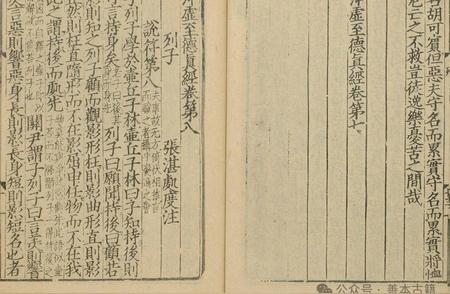 胡可賔但惡夫守名而累實守名而累實將恤
危亡之不救豈徒逸樂憂苦之間哉
沖虛至德真經卷第七
沖虛至德真經卷第八
列子 張湛處度注
說符第八 夫事故無方倚伏相推言而驗之者攝乎變通之會
列子學於壷丘子林壷丘子林曰子知持後則
可言持身矣 列子曰願聞持後曰顧若
影則知之列子顧而觀影形枉則影曲形直則影
正然則枉直隨形而不在影屈申任物而不在我
此之謂持後而處先
關尹謂子列子曰言美則響
美言惡則響惡身長則影長身短則影短名也者
公众号·善本古籍